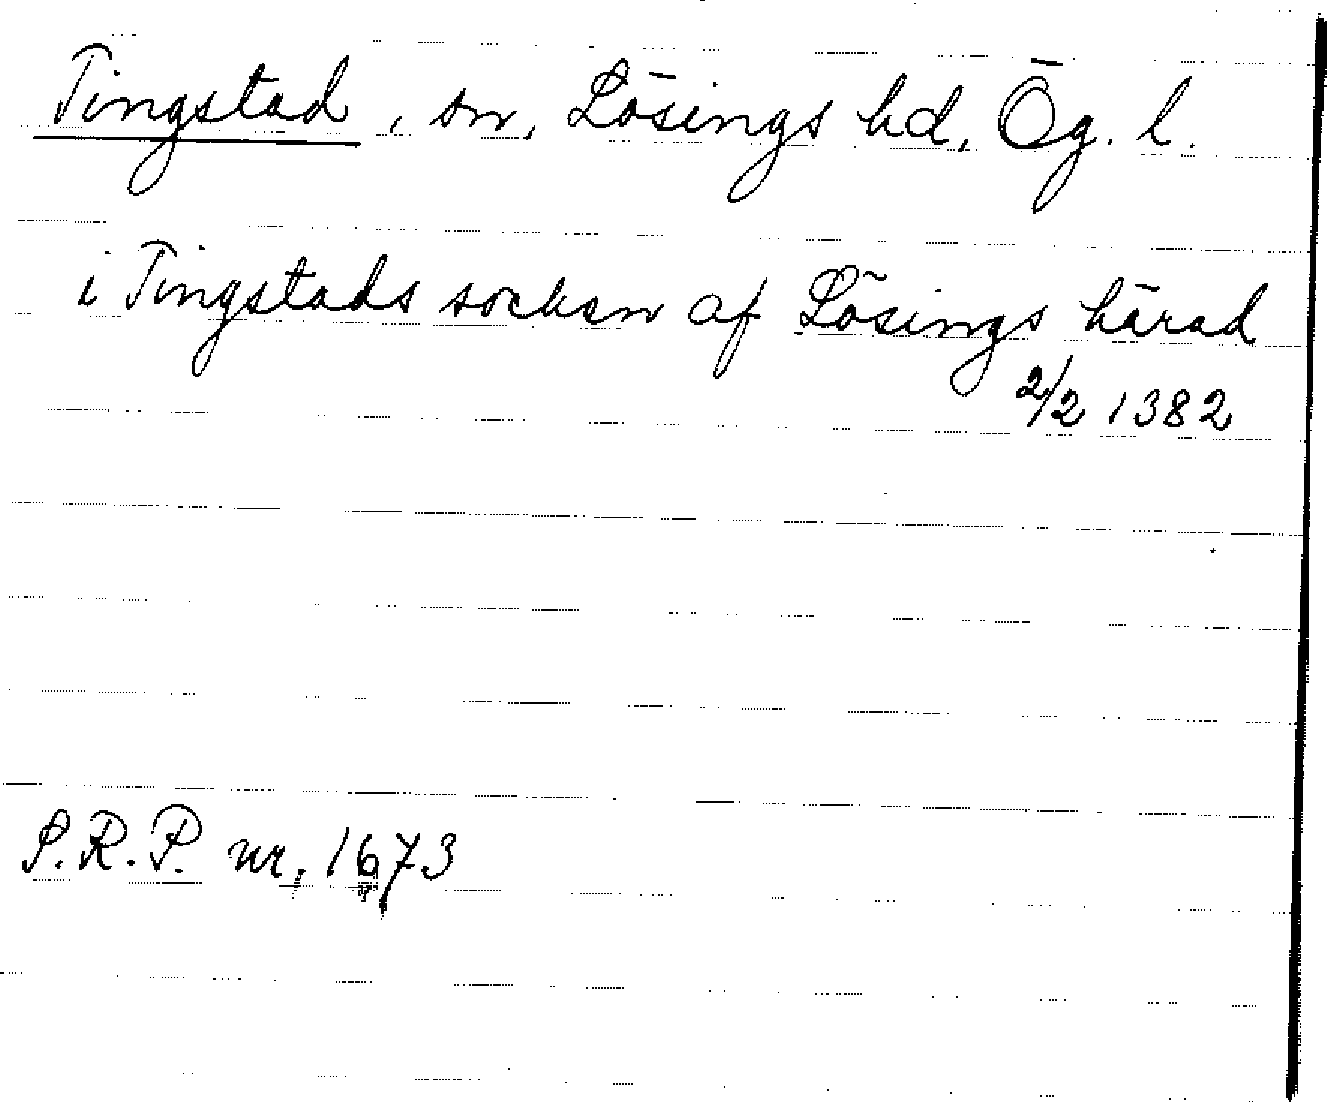 Tingstad, sn, Lösings hd, Ög. l.
i Tingstads socken af Lösings härad
2/2 1382
S.R.P. nr. 1673